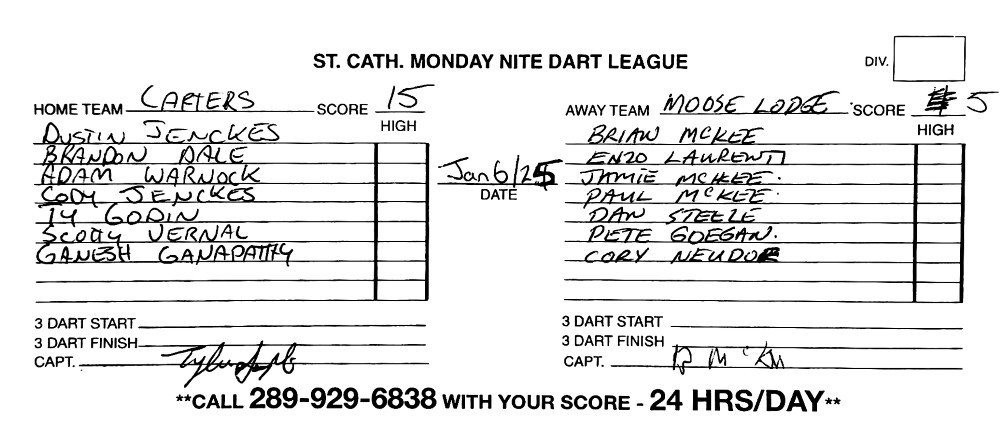 ST. CATH. MONDAY NITE DART LEAGUE
DIV.
HOME TEAM CAFTERS SCORE 15
HIGH
DUSTIN JENCKES
BRANDON DALE
ADAM WARNOCK
CODY JENCKES
TY GODIN
SCOTTY VERNAL
GANESH GANAPATHY
3 DART START
3 DART FINISH
CAPT.
Jan 6/25
DATE
AWAY TEAM MOOSE LODGE SCORE 5
HIGH
BRIAN MCKEE
ENZO LAURENTI
JAMIE MCKEE.
PAUL MCKEE.
DAN STEELE
PETE GOEGAN.
CORY NEUDORF
3 DART START
3 DART FINISH
CAPT.
**CALL 289-929-6838 WITH YOUR SCORE - 24 HRS/DAY**